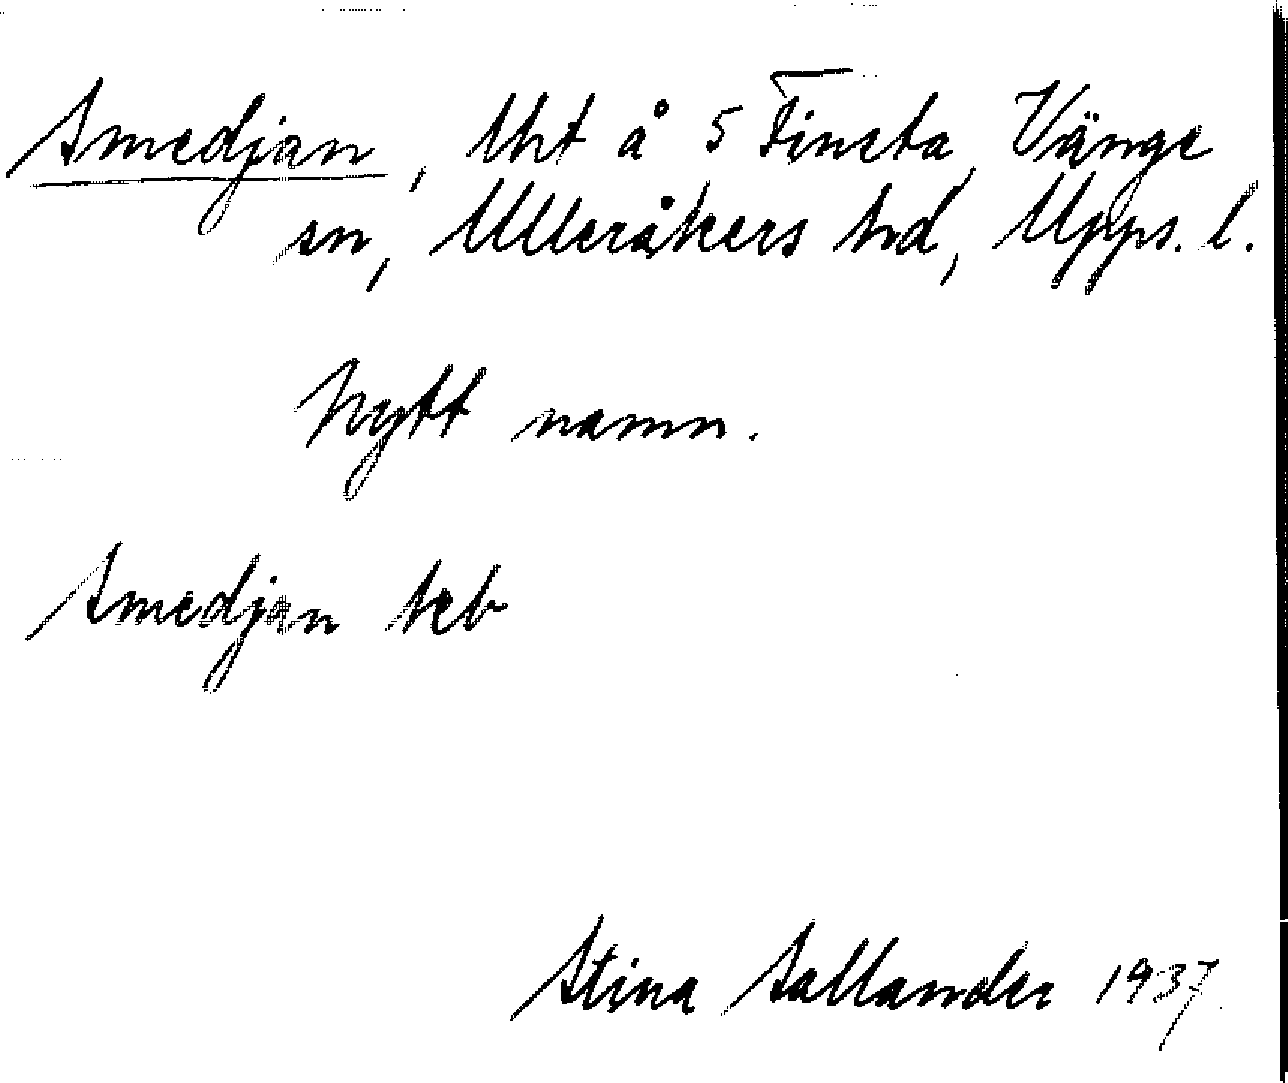 Smedjan, Uht å 5 Finsta, Vänge
sn, Ulleråkers hd, Upps. l.
Nytt namn.
Smedjan Aeb
Stina Sallander 1937